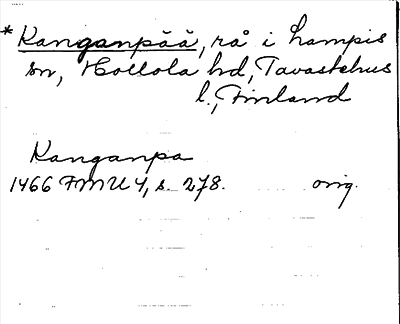 *Kanganpää, rå i Lampis
sn, Hollola hd, Tavastehus
l., Finland
Kanganpa
1466 FMU 4, s. 278. orig.